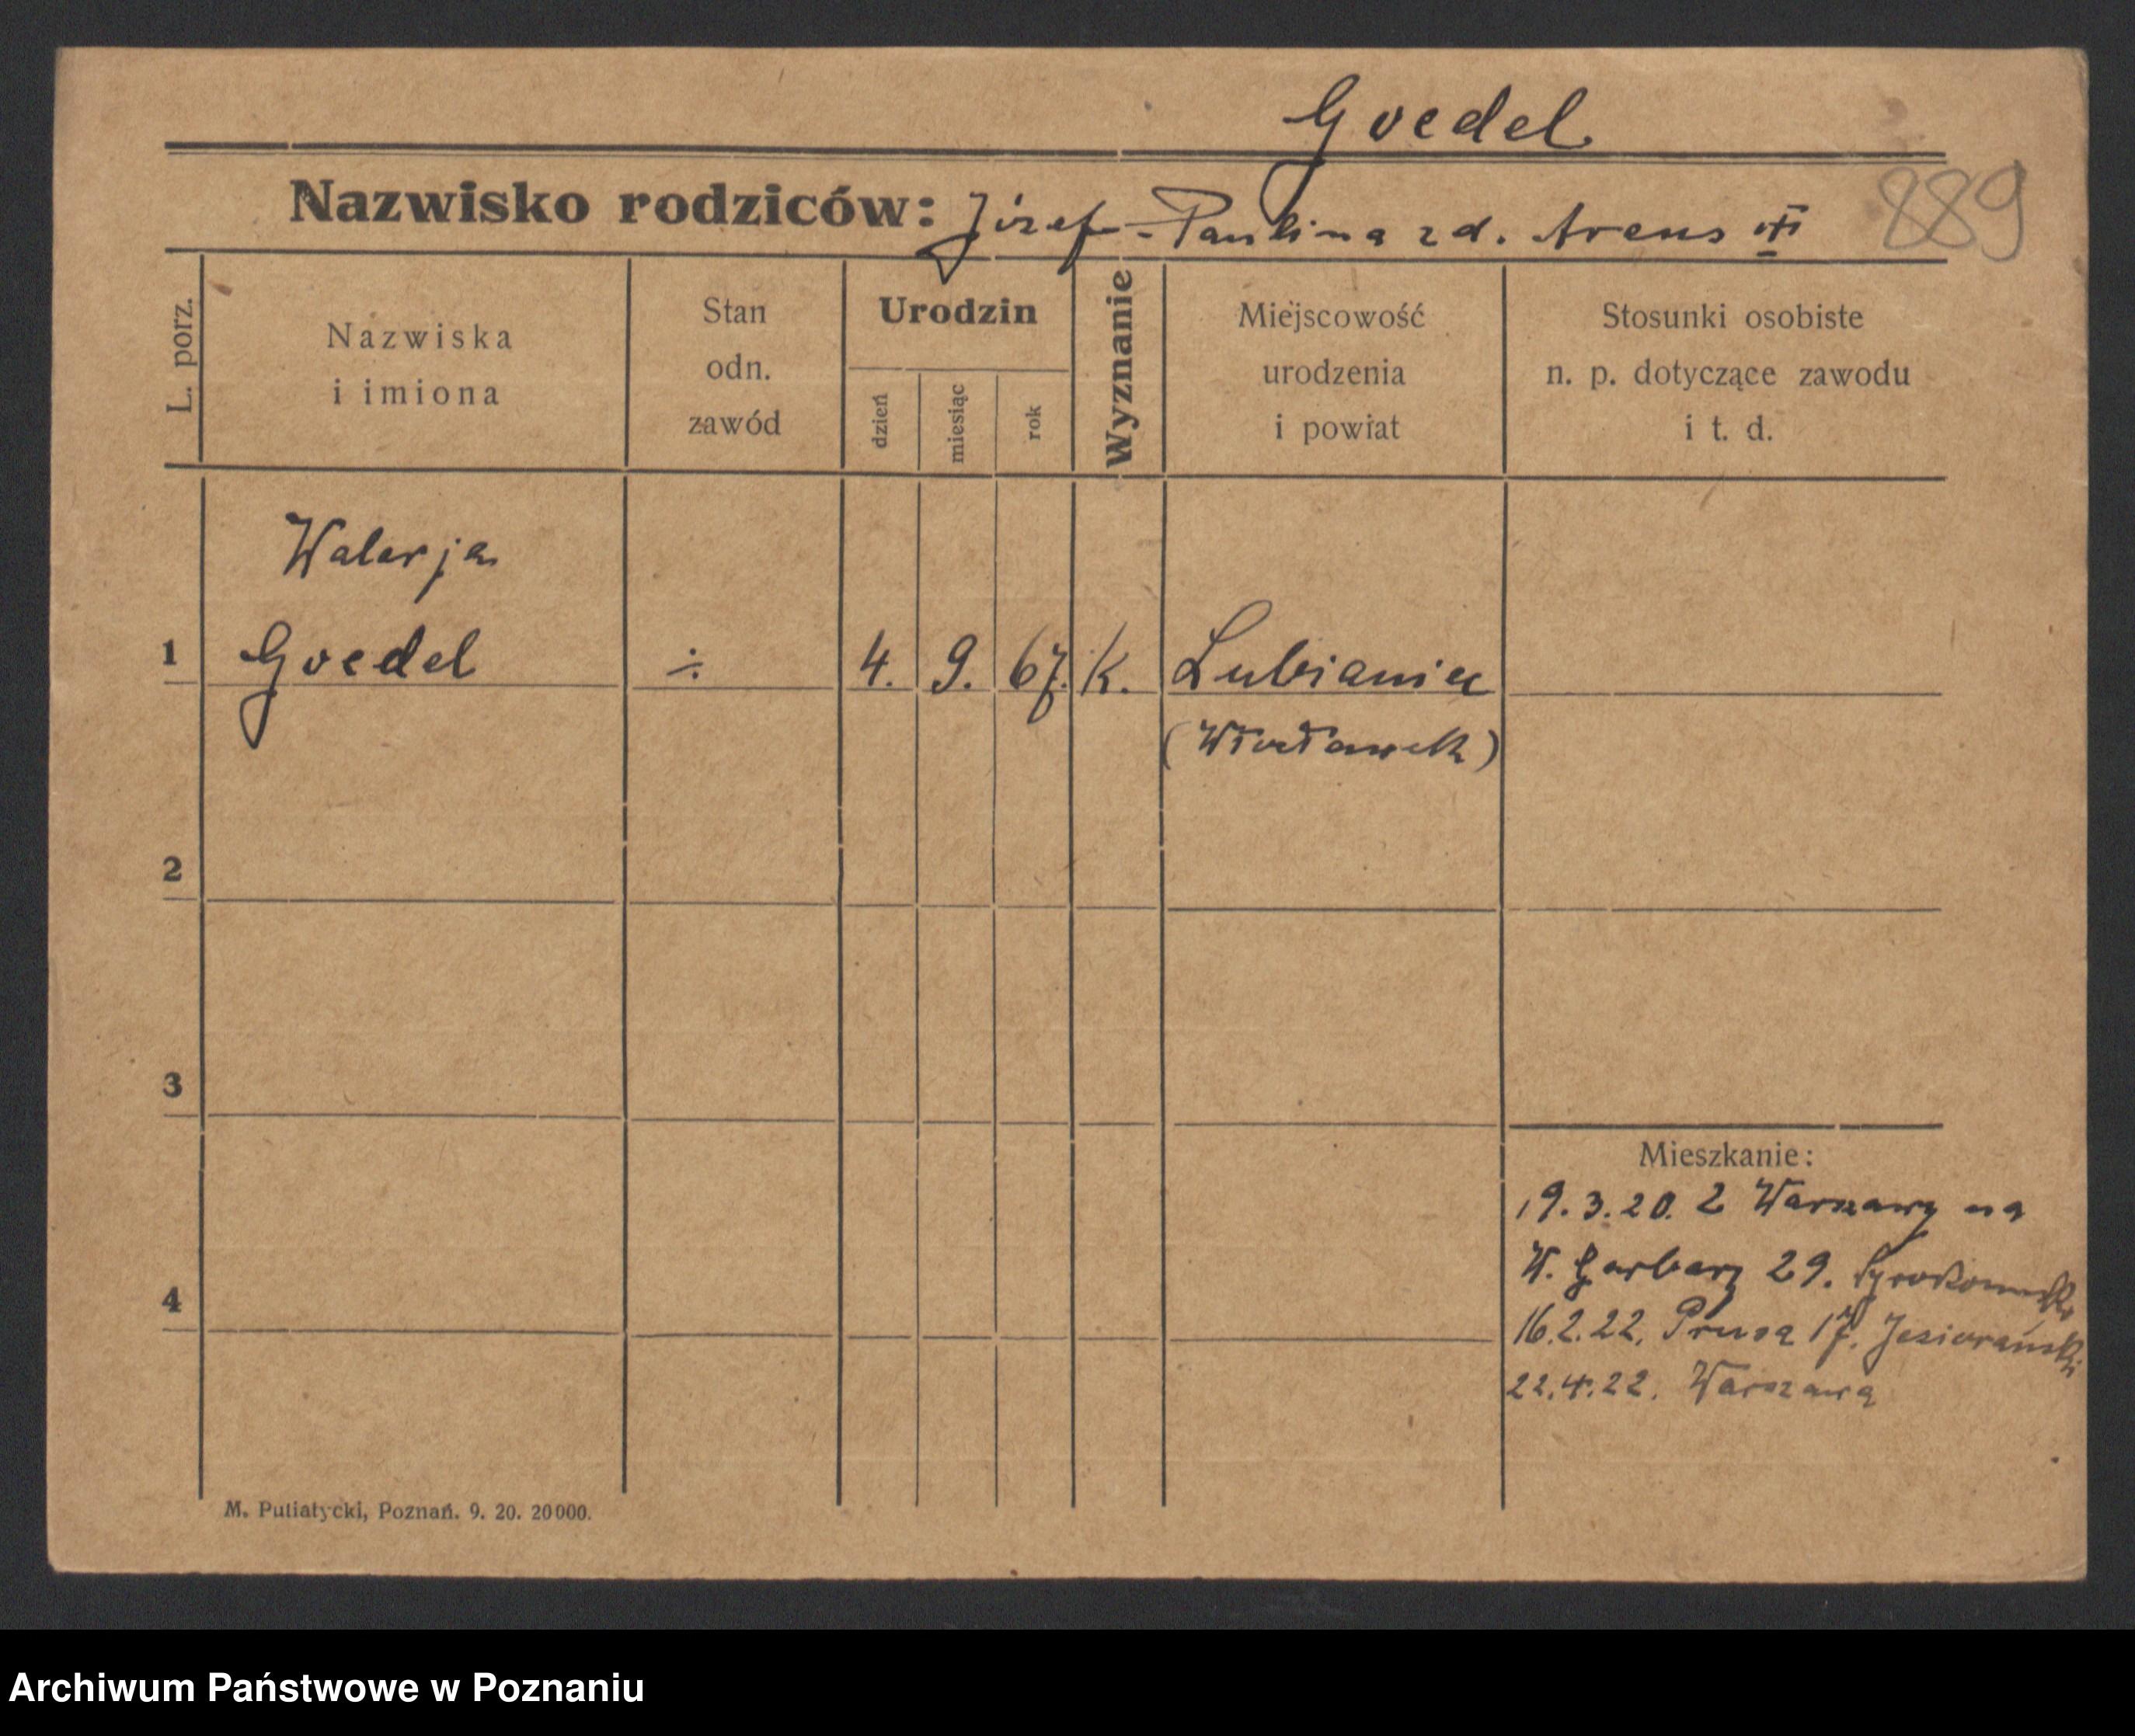 Goedel
889
Nazwisko rodziców: Józef - Paulina z d. Arens
L. porz.
Nazwiska
i imiona
Stan
odn.
zawód
Urodzin
dzień
miesiąc
rok
Wyznanie
Miejscowość
urodzenia
i powiat
Stosunki osobiste
n. p. dotyczące zawodu
i t. d.
Walerja
1 Goedel ÷ 4. 9. 67. K. Lubianiec
(Włocławek)
2
3
4
Mieszkanie:
19.3.20. Z Warszawy na
W. Garbary 29.
16.2.22. Prusa 17. Jeziorański
22.4.22. Warszawa
M. Putiatycki, Poznań. 9. 20. 20000.
Archiwum Państwowe w Poznaniu